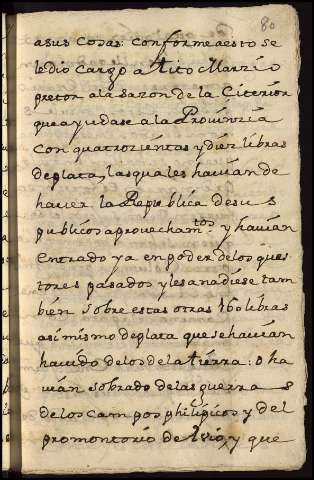 80
asus cosas: conforme aesto se
le dio cargo a tito Marzio
pretor ala sazon de la Citerior
que ayudase ala Prouinzia
con quatrozientas y diez libras
deplata, lasquales hauian de
hauer la Republica desus
publicos aprovecham.tos y hauian
entrado ya en poder delos ques
tores pasados y lesanadiese tam
bien sobre estas otras 160 libras
asi mismo deplata que se hauian
hauido delos de la tierra: o ha
uian sobrado delas guerras
delos campos philipicos y del
promontorio de y que